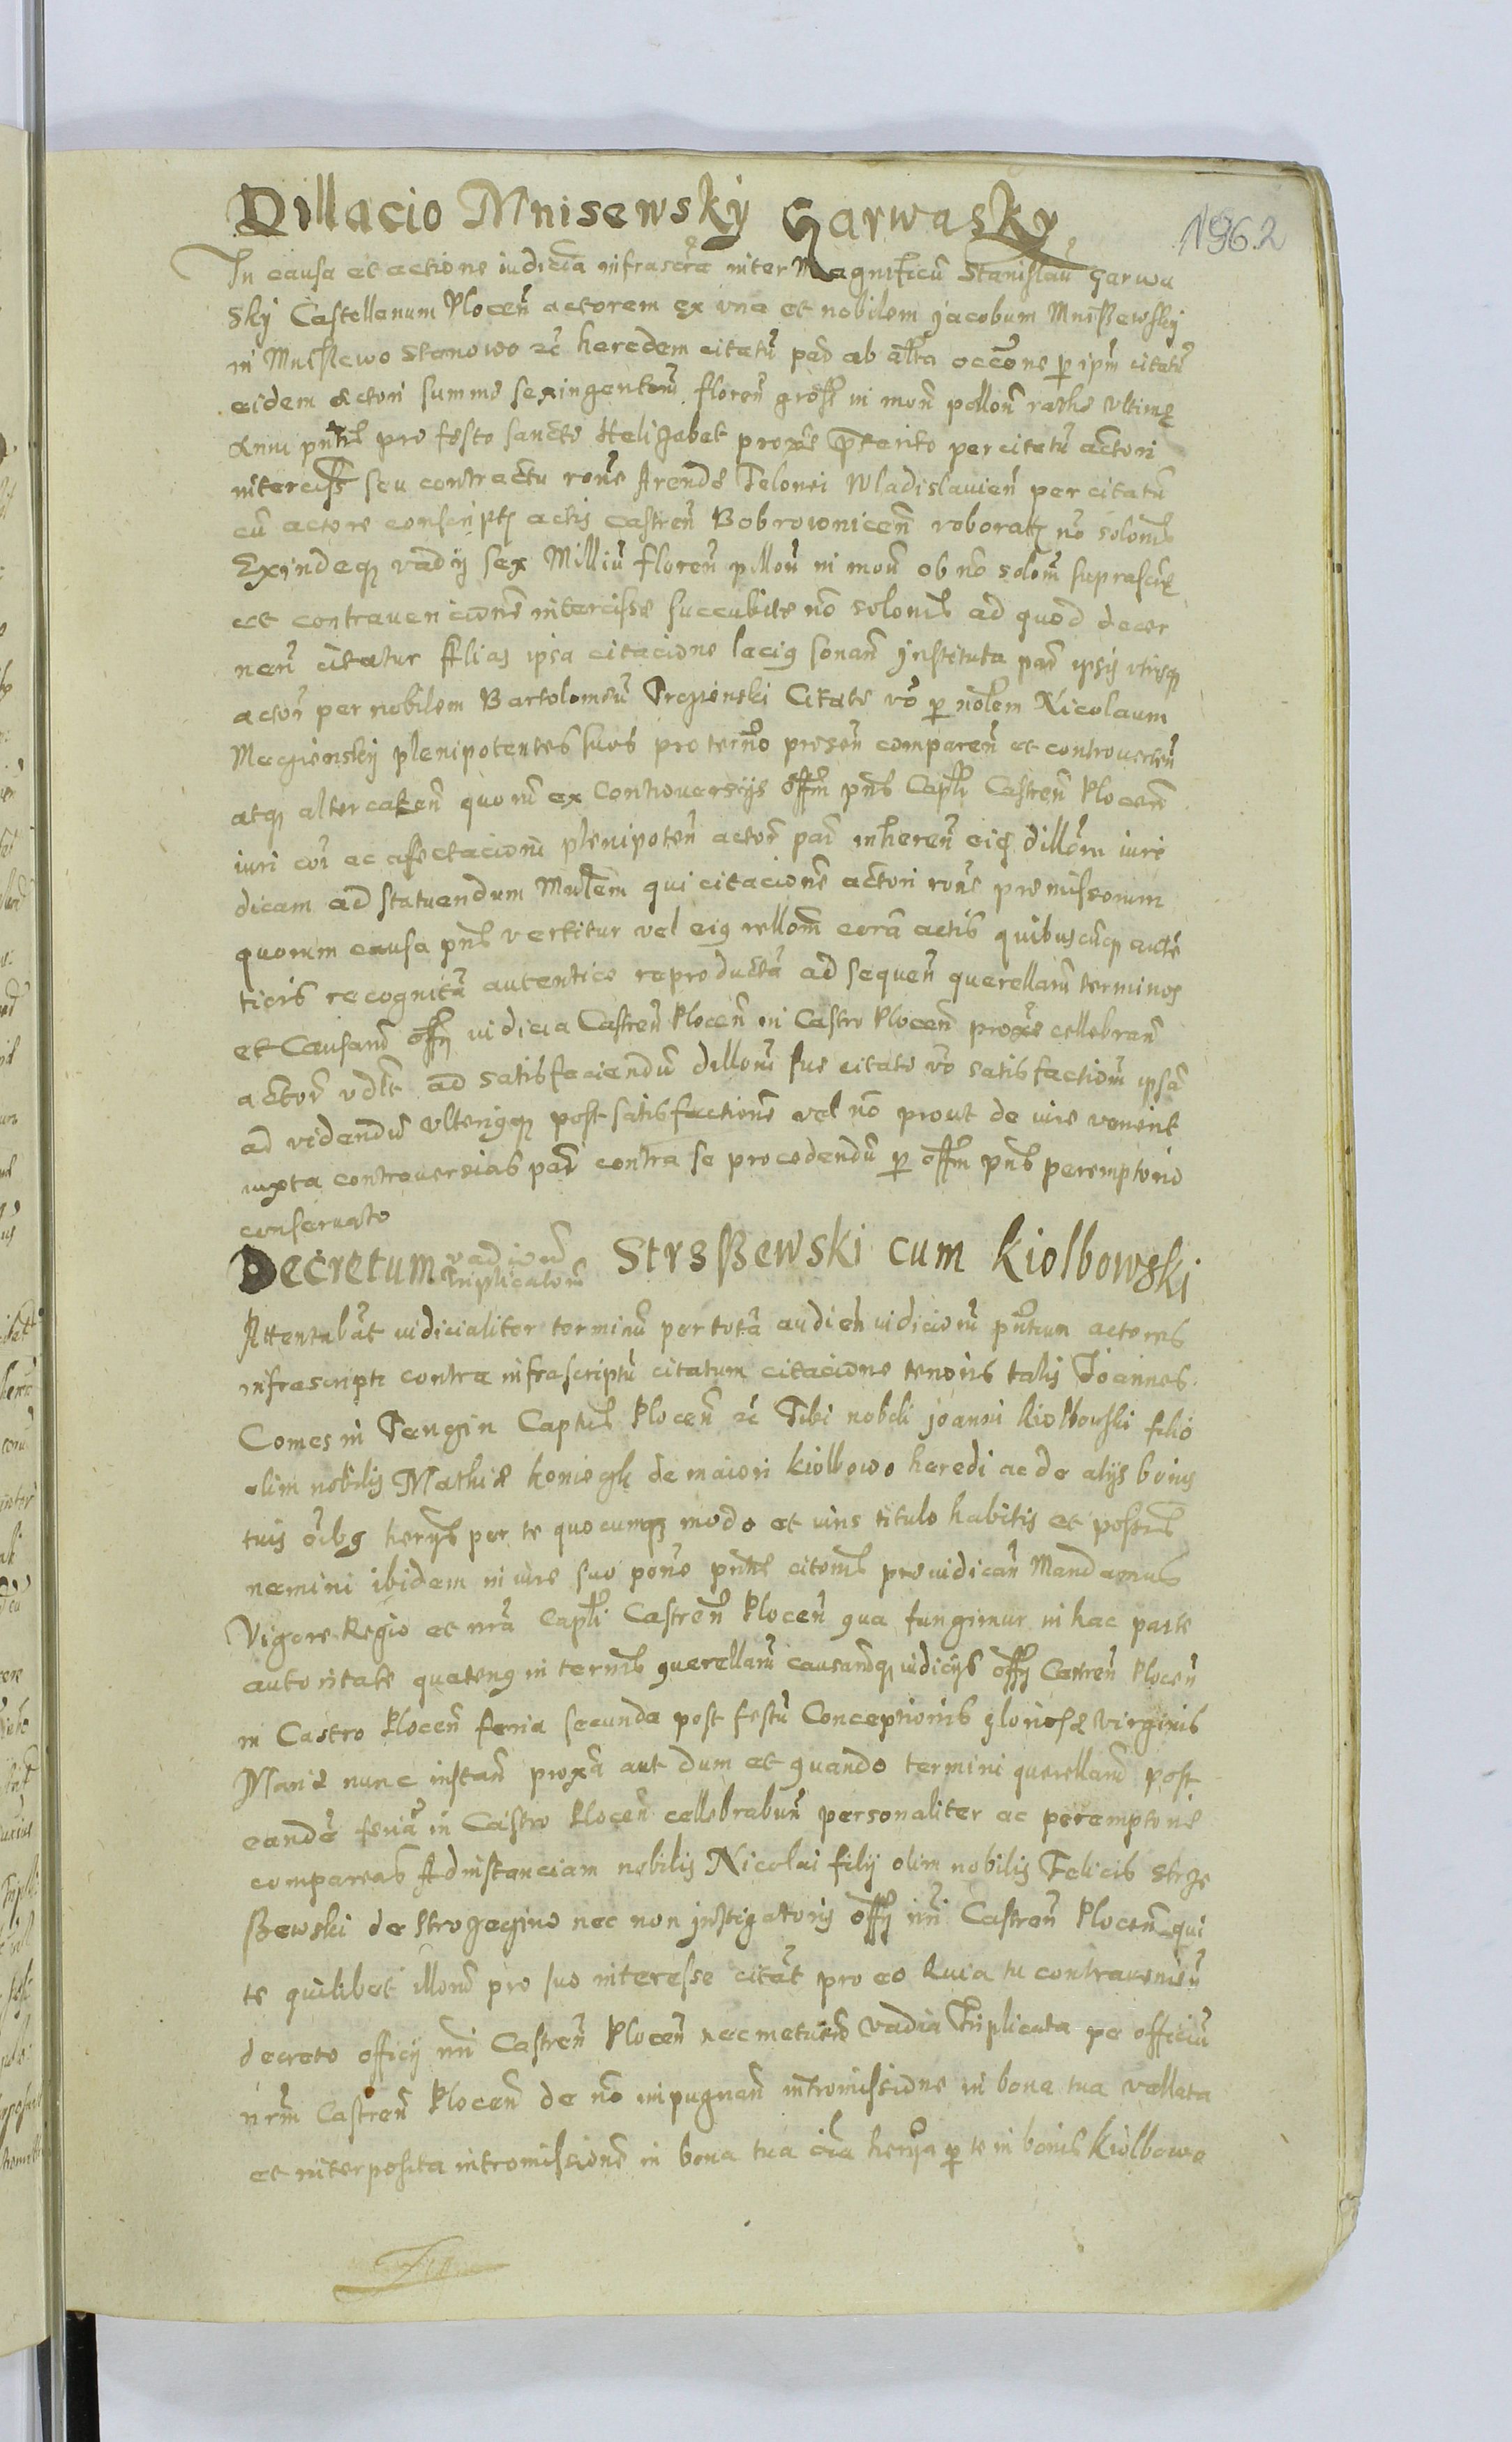 Dillacio Mnisewsky Garwasky
196.2
In causa et actione iudicia infrascra inter Magnificu Stanislau Garwa
sky Castellanum Plocen actorem ex vna et nobilem Jacobum Mnissewsky
in Mnissewo Stanowo et heredem citatu pad ab alta occone p ipm citatu
eidem actori summe sexingentoru floren gross in mon pollon rathe vltime
Anni pntis pro festo sancte Helizabet proxe preterito per citatu actori
intercisse seu contractu rone Arende Telonei Wladislauien per citatum
cu actore conscripti actis castren Bobrownicen roborati no solonis
Exindeq vadij sex Milliu floren pollon in mon ob no solom suprascre
et contravencione intercisse succubite no solonis ad quod decer
nen citatur Alias ipsa citacione lacius sonan Instituta par ipsis vtrisq
actor per nobilem Bartolomeu citato vo p nobilem Nicolaum
plenipotentes suos pro termo presen comparen et controverten
atq altercaten quorum ex controuersijs offm pns Capli Castren Plocen
iuri coi ac afectacioni plenipoten actor par inheren eiq dillom iuri
dicam ad statuendum Mnlem qui citacione actori rone premissorum
quorum causa pns vertitur vel eius rellom cora actis quibuscuq aute
ticis recognita autentice reproducta ad sequen querellaru terminos
et Causaru offij iudicia Castren Plocen in Castro Plocen proxe cellebran
actor vdlt ad satisfaciendu dilloni sue citato vo satisfactiom ipsa
ad videndu vlteriusq post satisfactione vel no prout de iure venerit
iuxta controversias par contra se procedendu p offm pns peremptorie
conservato
Decretum vadiorum triplicatorum Strzssewski cum Kiolbowski
Attentabat iudicialiter terminu per tota audien iudicioru pntium actores
infrascripti contra infrascriptu citatum citacione tenoris talis Joannes
Comes in Tengin Captus Plocen et Tibi nobili joanni Kiolbowski filio
olim nobilis Mathie de maiori Kiolbowo heredi ac de alijs bonis
tuis oibus per te quocumq modo et iuris titulo habitis et possess
nemini ibidem in iure suo pone pntis citonis preiudican Mandamus
Vigore Regio et nra Capli Castren Plocen qua fungimur in hac parte
autoritate quatenus in termis querellaru causaruq iudicijs offij Castren Plocen
in Castro Plocen feria secunda post festu Conceptionis gloriose virginis
Marie nunc instan proxa aut dum et quando termini querellaru post
eande feria in Castro Plocen cellebrabun personaliter ac peremptorie
compareas Ad instanciam nobilis Nicolai filij olim nobilis Felicis Strze
ssewski de nec non instigatoris offij nri Castren Plocen qui
te quilibet illoru pro suo interesse citat pro eo Quia tu contravenien
decreto officij nri Castren Plocen nec metuen vadia Triplicata pe officiu
nrm Castren Plocen de no impugnan intromissione in bona tua vallata
et interposita intromissione in bona tua p te in bonis Kiolbowo